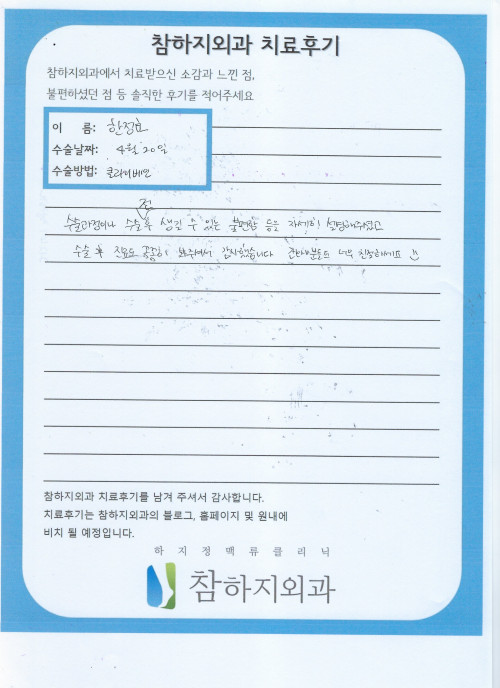 참하지외과 치료후기
참하지외과에서 치료받으신 소감과 느낀 점,
불편하셨던 점 등 솔직한 후기를 적어주세요
이 름: 한정효
수술날짜: 4월 20일
수술방법: 클라리베인
전
수술과정이나 수술 후 생길 수 있는 불편함 등을 자세히 설명해주셨고
수술 후 진료도 꼼꼼히 봐주셔서 감사했습니다 간호사분들도 너무 친절하세요
참하지외과 치료후기를 남겨 주셔서 감사합니다.
치료후기는 참하지외과의 블로그, 홈페이지 및 원내에
비치 될 예정입니다.
하지정맥류클리닉
참하지외과